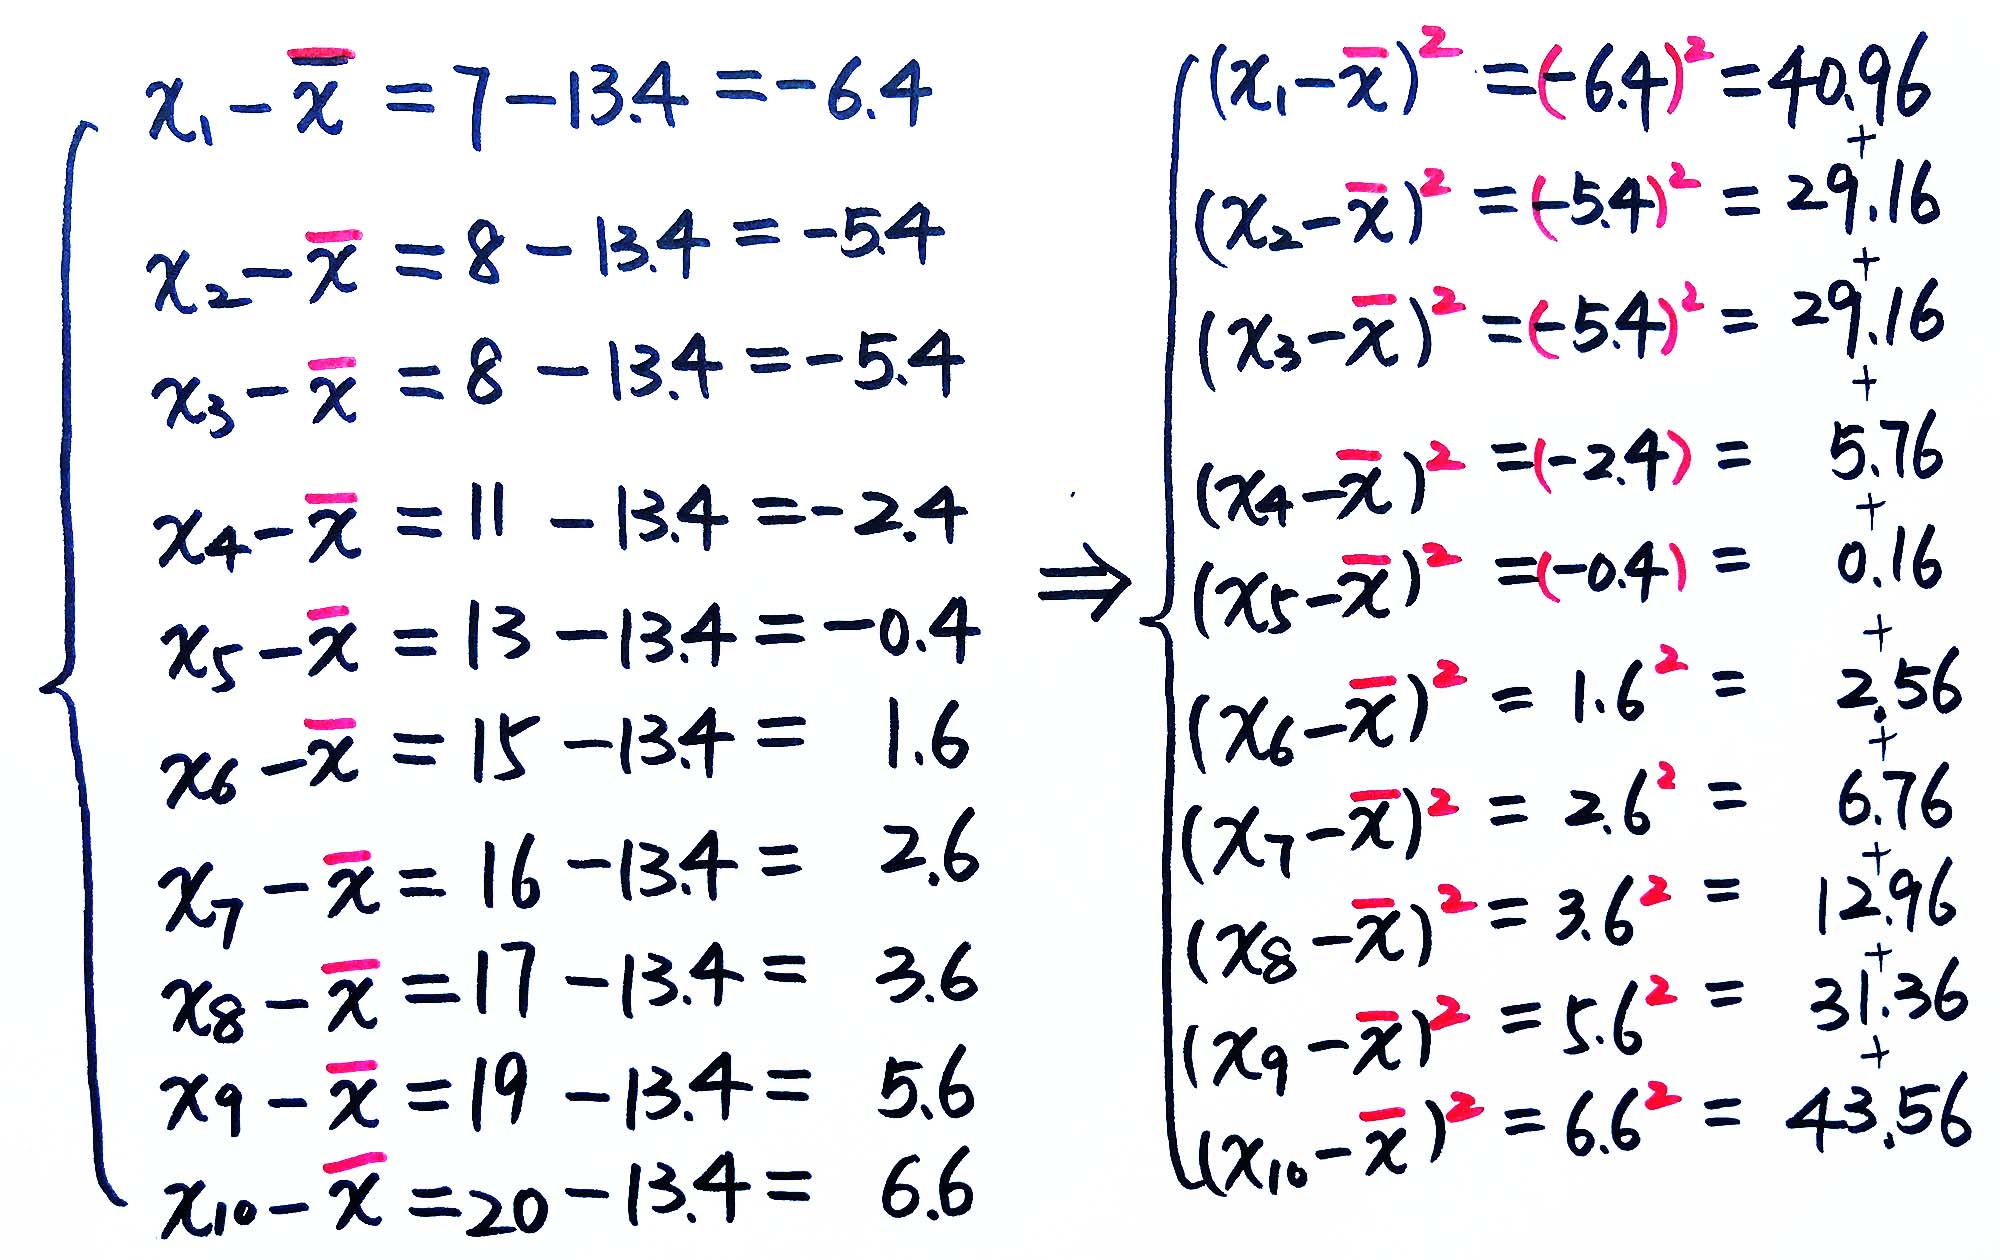 x₁ - x̅ = 7 - 13.4 = -6.4
x₂ - x̅ = 8 - 13.4 = -5.4
x₃ - x̅ = 8 - 13.4 = -5.4
x₄ - x̅ = 11 - 13.4 = -2.4
x₅ - x̅ = 13 - 13.4 = -0.4
x₆ - x̅ = 15 - 13.4 = 1.6
x₇ - x̅ = 16 - 13.4 = 2.6
x₈ - x̅ = 17 - 13.4 = 3.6
x₉ - x̅ = 19 - 13.4 = 5.6
x₁₀ - x̅ = 20 - 13.4 = 6.6
⇒
(x₁ - x̅)² = (-6.4)² = 40.96
+
(x₂ - x̅)² = (-5.4)² = 29.16
+
(x₃ - x̅)² = (-5.4)² = 29.16
+
(x₄ - x̅)² = (-2.4) = 5.76
+
(x₅ - x̅)² = (-0.4) = 0.16
+
(x₆ - x̅)² = 1.6² = 2.56
+
(x₇ - x̅)² = 2.6² = 6.76
+
(x₈ - x̅)² = 3.6² = 12.96
+
(x₉ - x̅)² = 5.6² = 31.36
+
(x₁₀ - x̅)² = 6.6² = 43.56